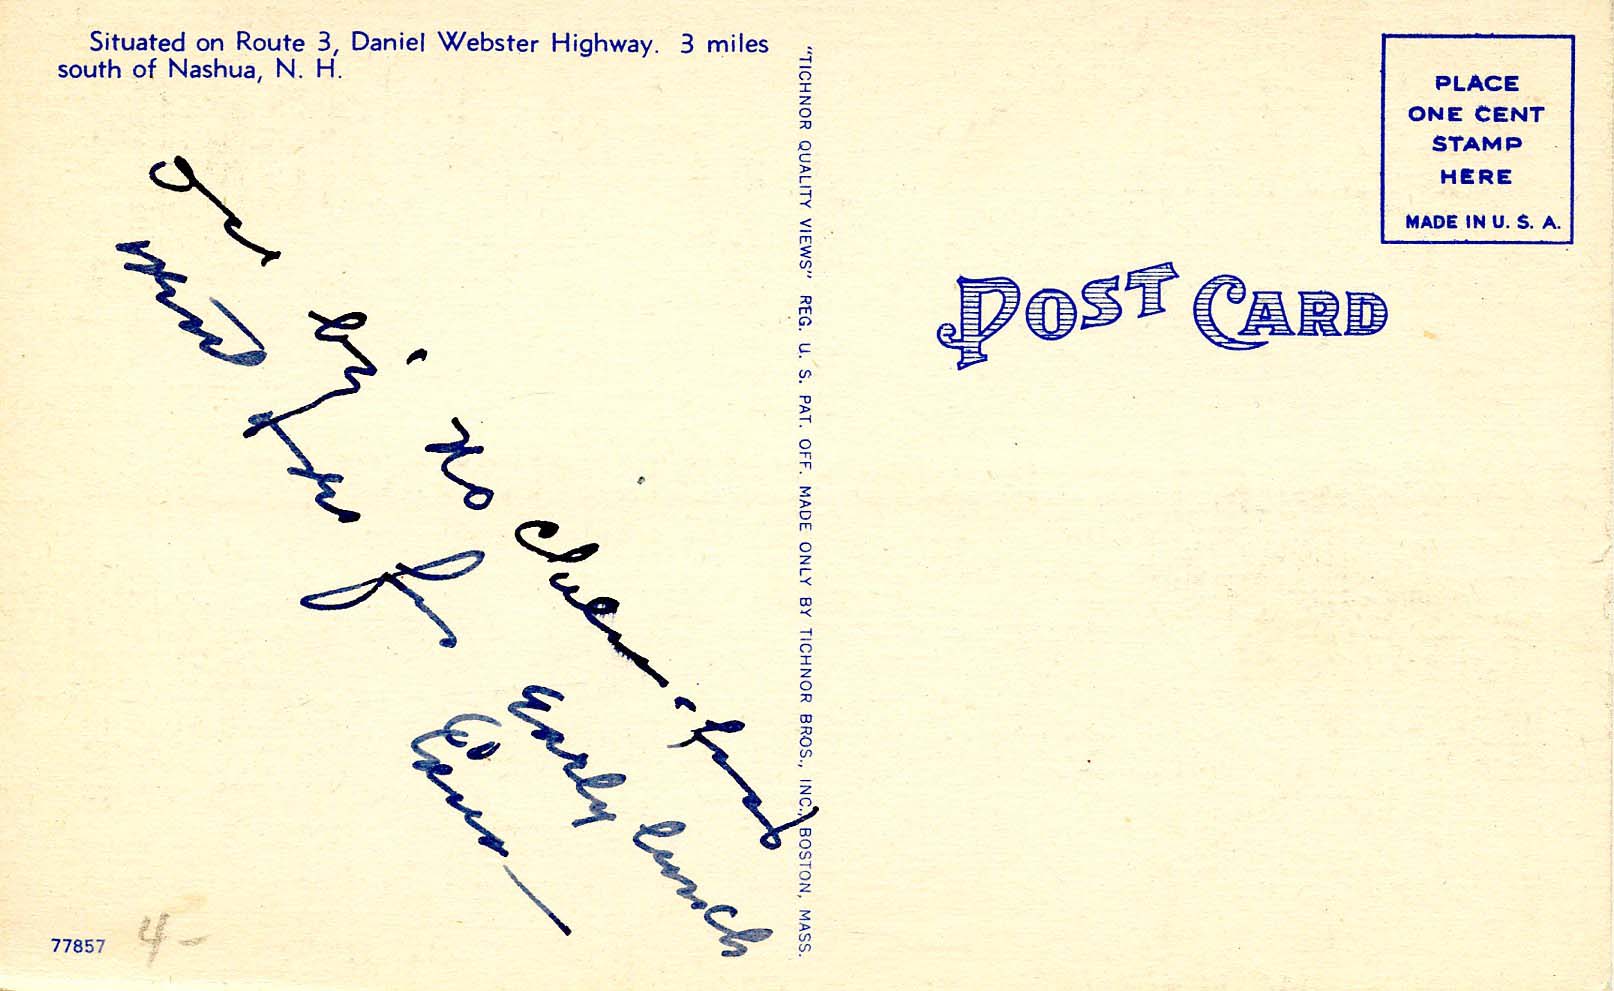 Situated on Route 3, Daniel Webster Highway. 3 miles
south of Nashua, N. H.
"TICHNOR QUALITY VIEWS" REG. U. S. PAT. OFF. MADE ONLY BY TICHNOR BROS., INC., BOSTON, MASS.
PLACE
ONE CENT
STAMP
HERE
MADE IN U. S. A.
POST CARD
no
for early lunch
77857
4-